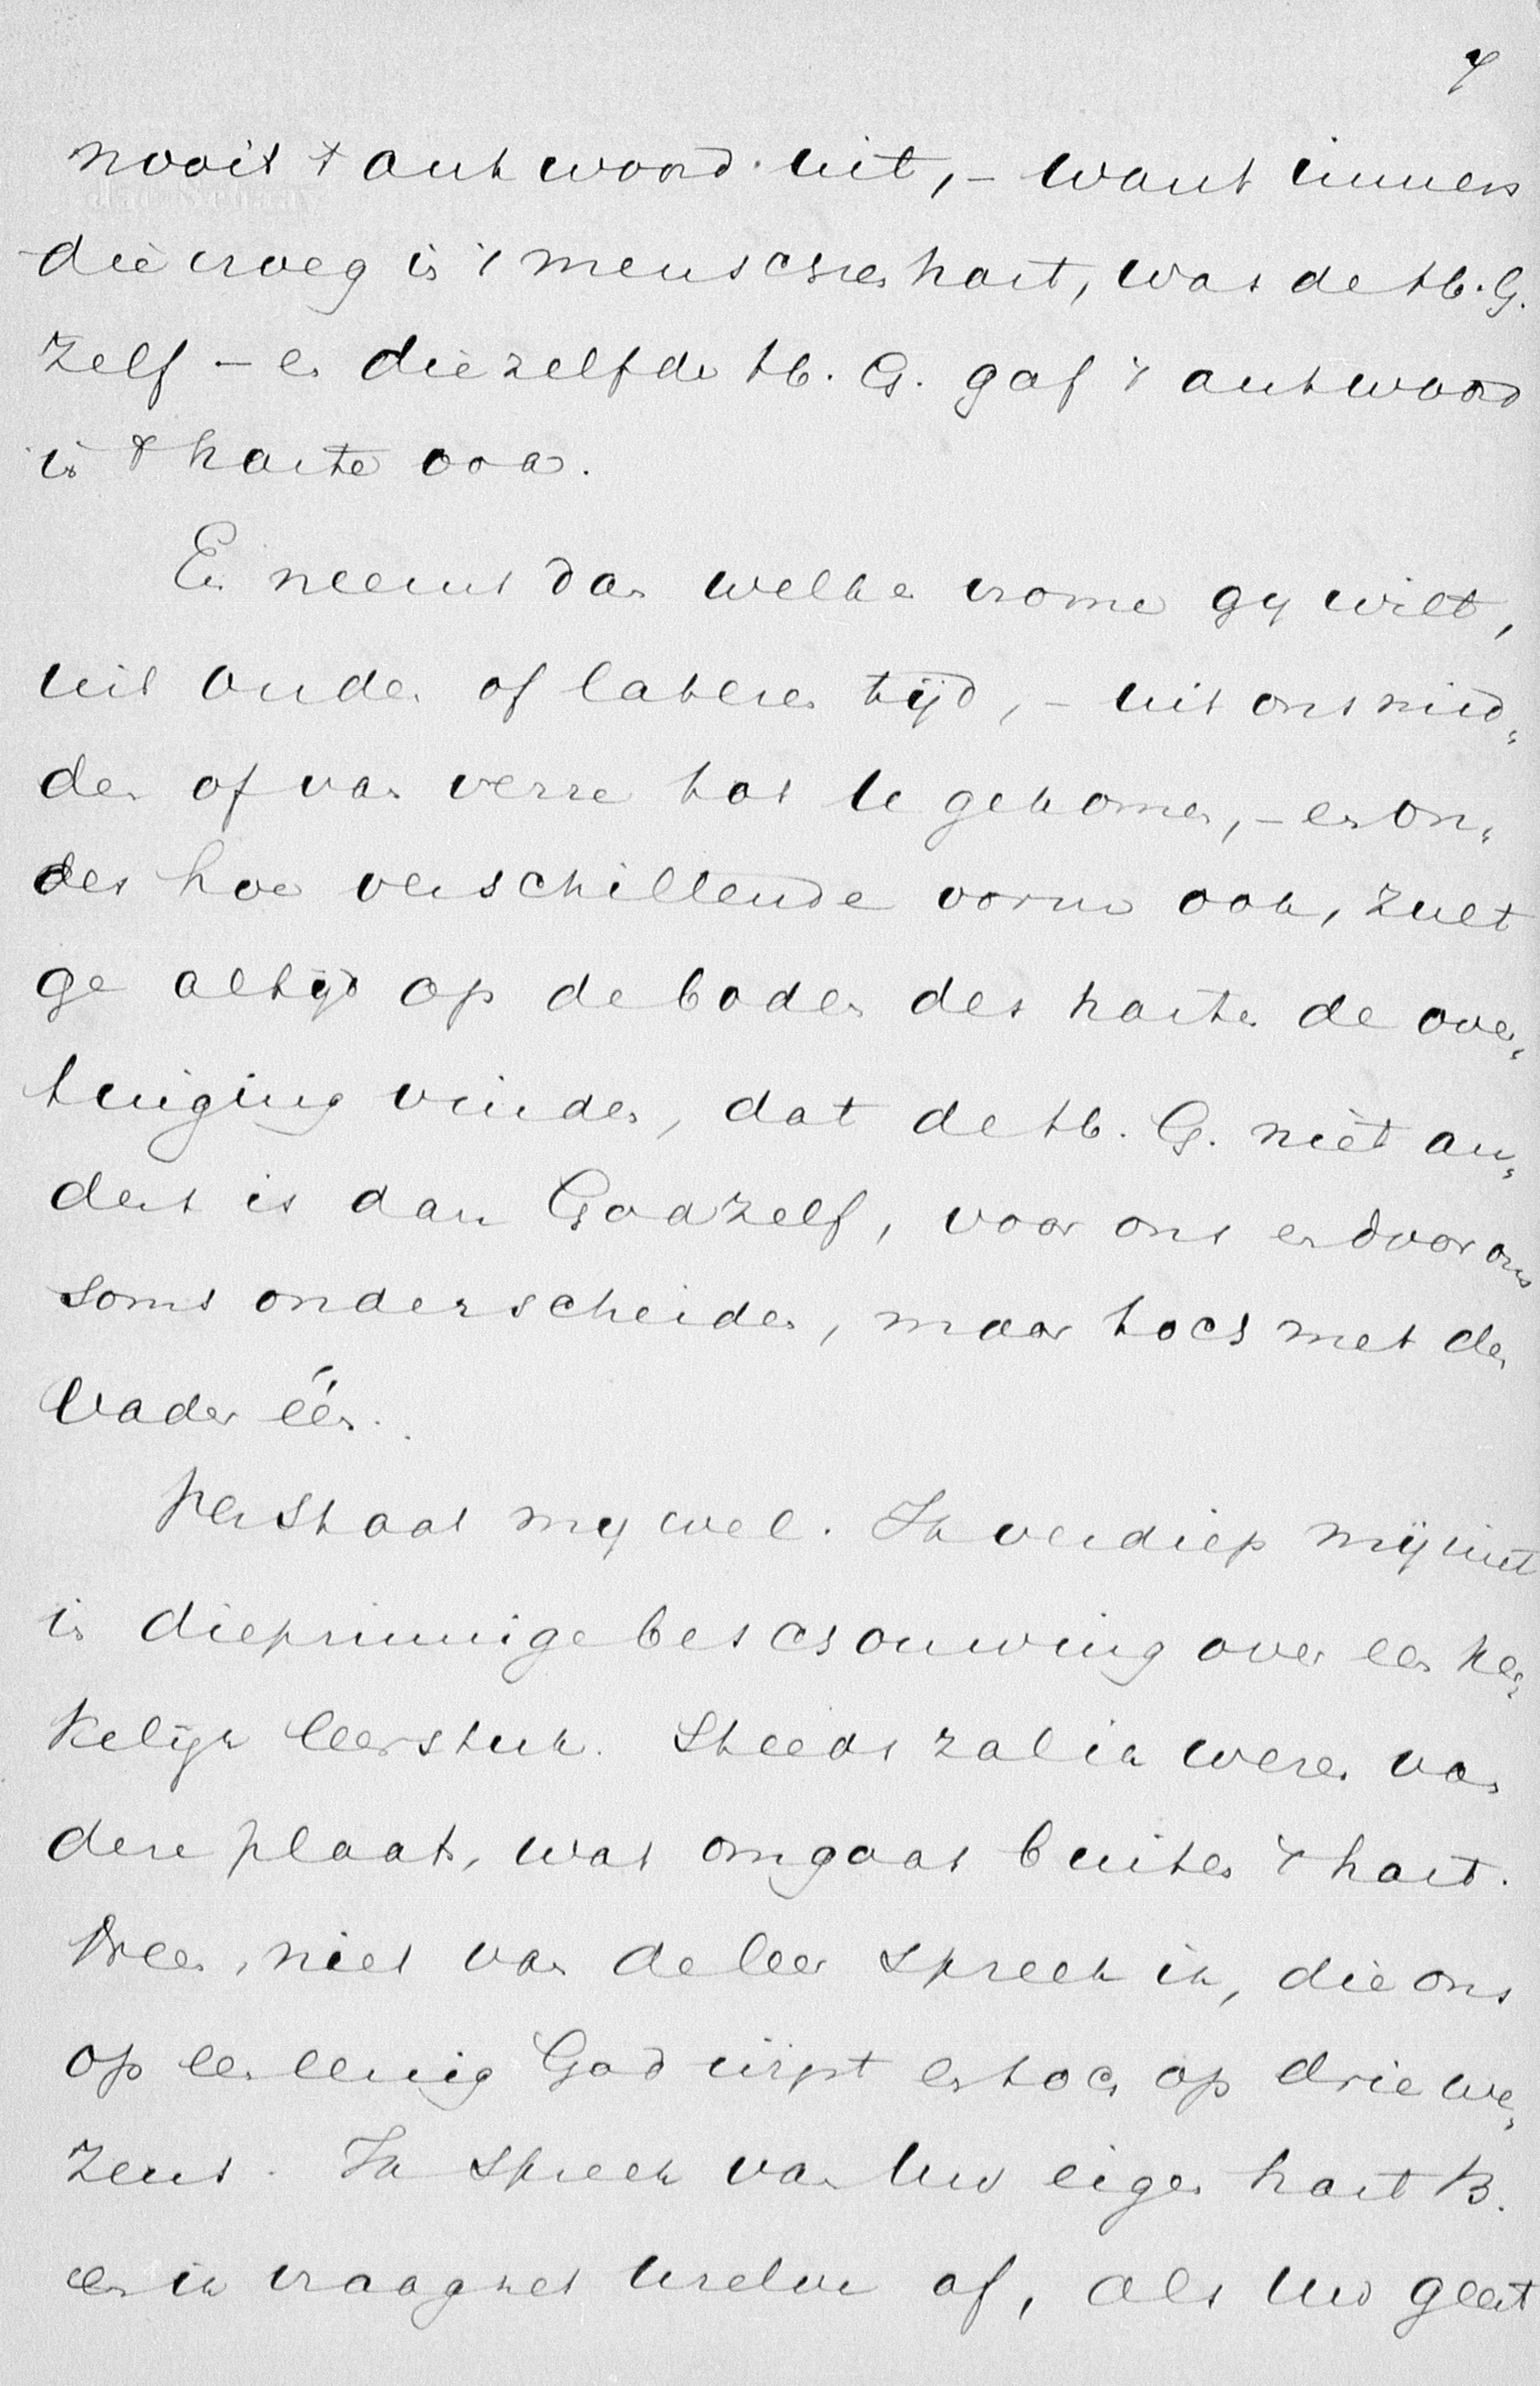 7
nooit 't antwoord uit, – want immers
die vroeg in 't menschenhart, was de H. G.
zelf – en diezelfde H. G. gaf 't antwoord
in 't harte ook.
En neemt dan welke vrome gy wilt,
uit ouden of lateren tijd, – uit ons mid„
den of van verre tot U gekomen, – en on„
der hoe verschillende vorm ook, zult
ge altijd op de bodem des harten de over„
tuiging vinden, dat de H. G. niet an„
ders is dan God zelf, voor ons en door ons
soms onderscheiden, maar toch met den
Vader één.
Verstaat my wel. Ik verdiep mij niet
in diepzinnige beschouwing over een ker„
kelijk leerstuk. Steeds zal ik weren van
deze plaats, wat omgaat buiten 't hart.
Neen, niet van de leer spreek ik, die ons
op een eenig God wijst en toch op drie we„
zens. Ik spreek van Uw eigen hart B.
en ik vraag het Uzelve af, als Uw geest